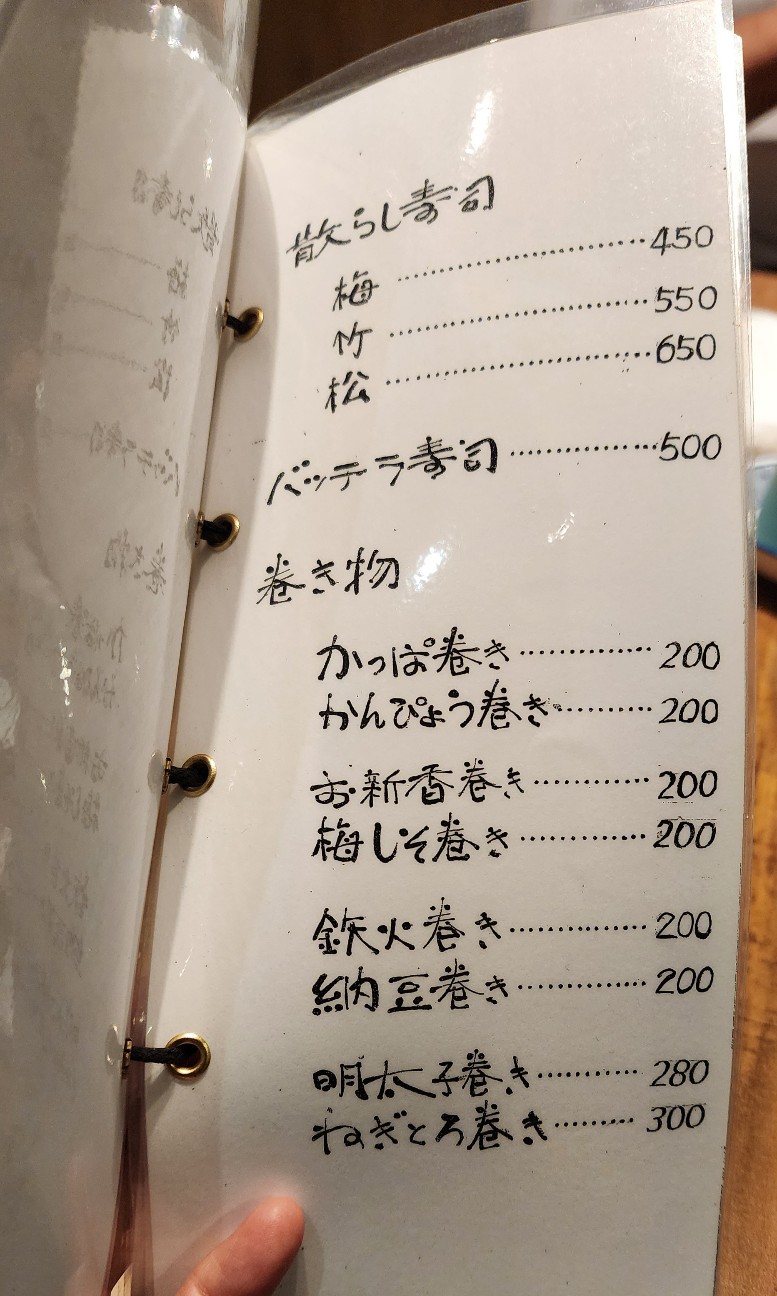 散らし寿司
梅 ‥‥‥‥‥‥‥‥‥ 450
竹 ‥‥‥‥‥‥‥‥‥ 550
松 ‥‥‥‥‥‥‥‥‥ 650
バッテラ寿司 ‥‥‥‥‥ 500
巻き物
かっぱ巻き ‥‥‥‥‥ 200
かんぴょう巻き ‥‥‥‥ 200
お新香巻き ‥‥‥‥ 200
梅しそ巻き ‥‥‥‥‥ 200
鉄火巻き ‥‥‥‥‥ 200
納豆巻き ‥‥‥‥‥ 200
明太子巻き ‥‥‥‥ 280
ねぎとろ巻き ‥‥‥ 300